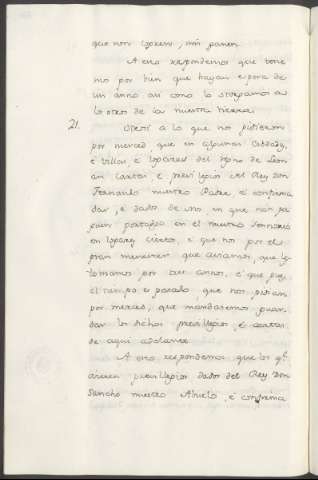 que non logren, nin panen.
A esto respondemos que tene
mos por bien que hayan espera de
un anno asi como lo otorgamos a
los otros de la nuestra tierra.
21. Otrosi a lo que nos pidieron
por merced que en algunas cibdades,
e villas, e logares del regno de Leon
an cartas e previllegios del Rey Don
Fernando nuestro Padre, e confirma
das, e dados de nos, en que non pa
guen portadgo en el nuestro sennorio
en logares ciertos, e que nos por el
gran menester que aviamos, que lo
tomamos por tres annos, e que pues
el tiempo es pasado, que nos pidian
por merced, que mandasemos guar
dar los dichos previllegios, e cartas
de aqui adelante.
A esto respondemos que los q.
tienen previllegios dados del Rey Don
Sancho nuestro Abuelo, e confirma